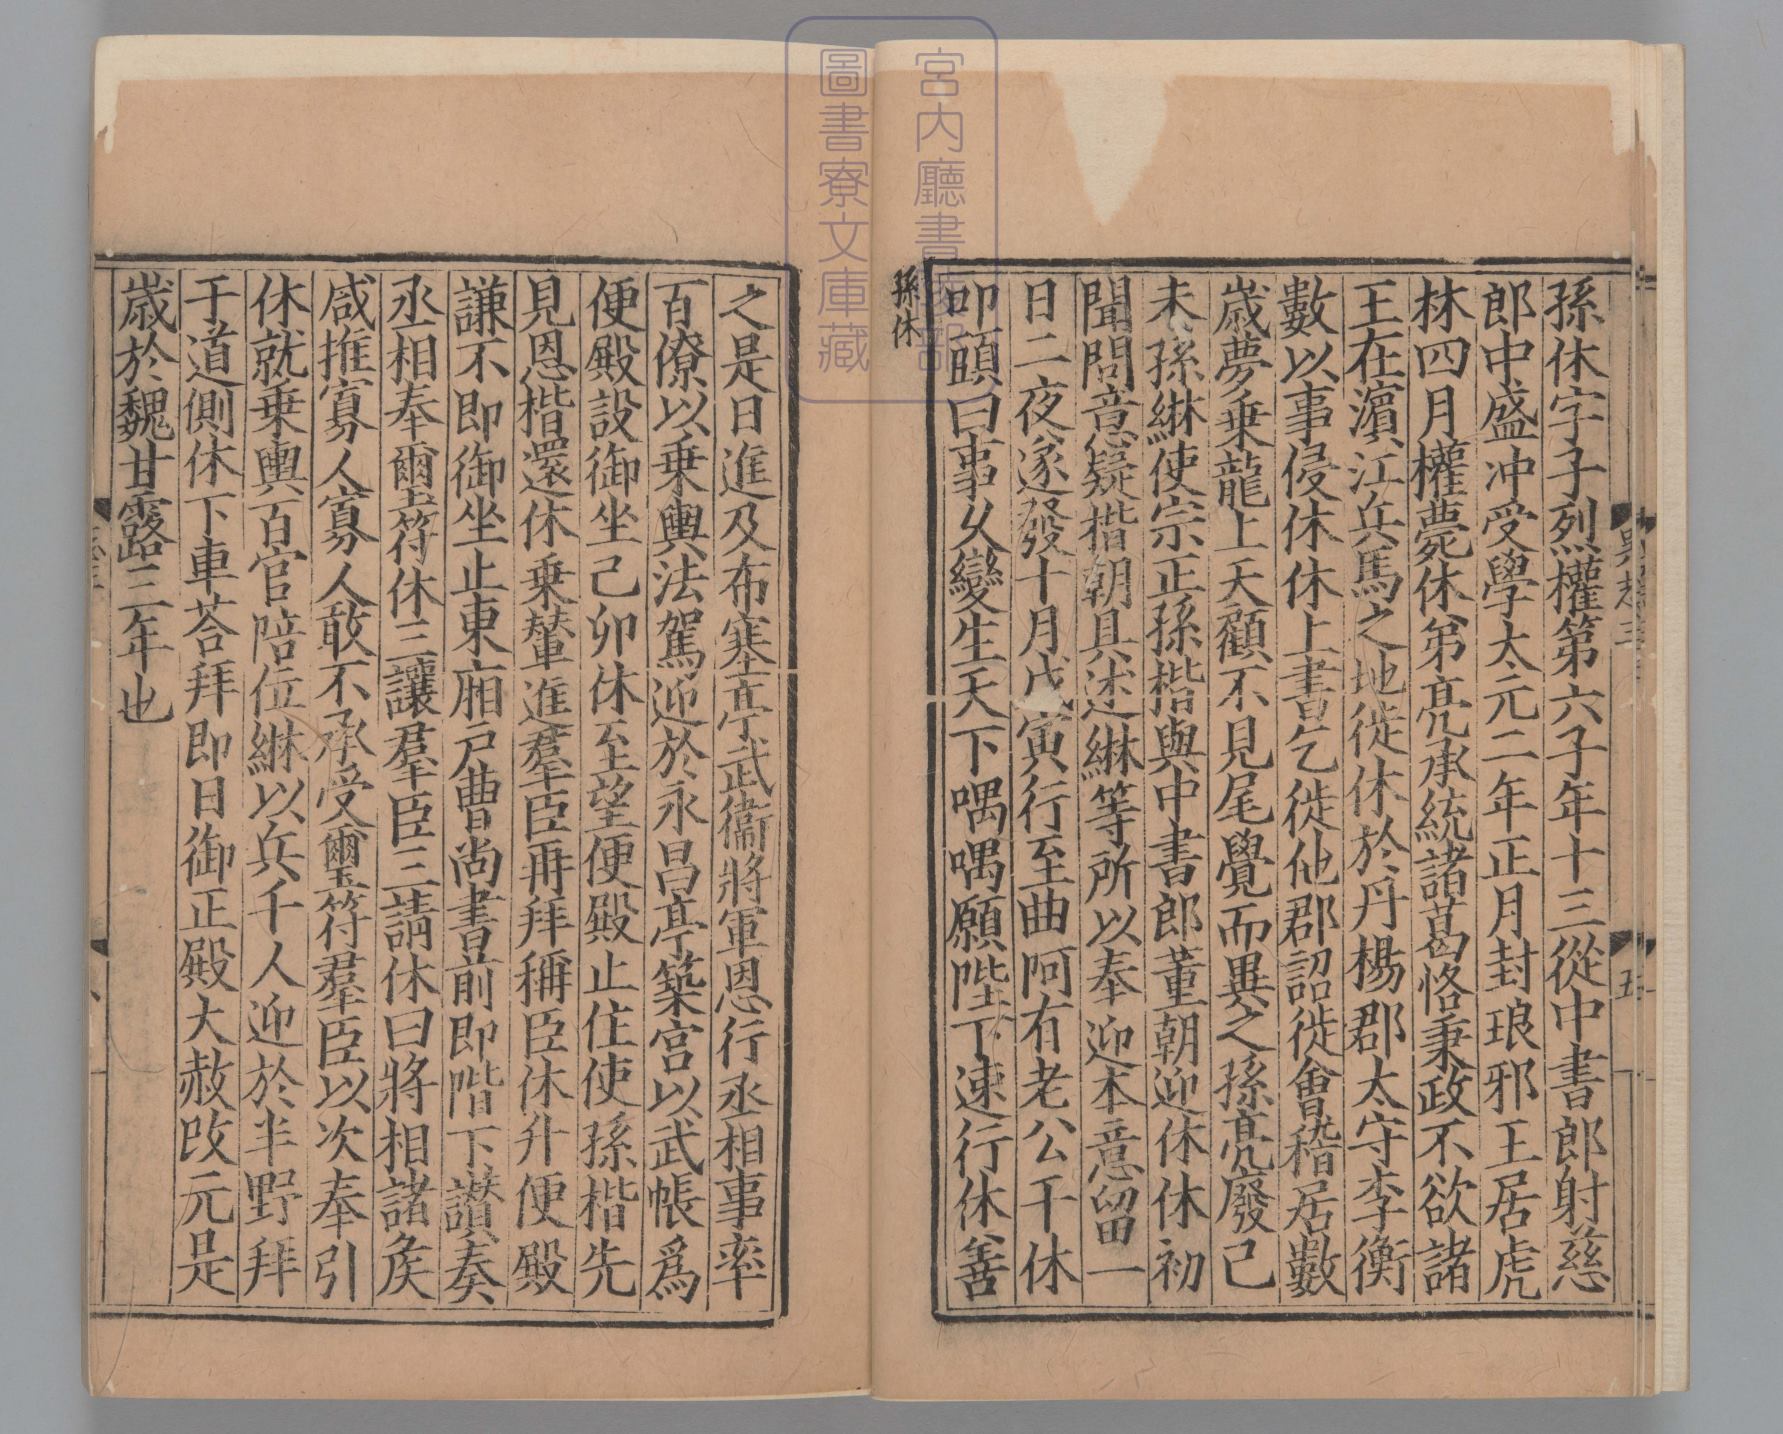 孫休字子烈權第六子年十三從中書郎射慈
郎中盛冲受學太元二年正月封琅邪王居虎
林四月權薨休弟亮承統諸葛恪秉政不欲諸
王在濵江兵馬之地徙休於丹楊郡太守李衡
數以事侵休休上書乞徙他郡詔徙會稽居數
歳夢乗龍上天顧不見尾覺而異之孫亮廢己
未孫綝使宗正孫楷與中書郎董朝迎休休初
聞問意疑楷朝具述綝等所以奉迎本意留一
日二夜遂發十月戊寅行至曲阿有老公干休
叩頭曰事乆變生天下喁喁願陛下速行休善
孫休
之是日進及布塞亭武衞將軍恩行丞相事率
百僚以乗輿法駕迎於永昌亭築宫以武帳爲
便殿設御坐己卯休至望便殿止住使孫楷先
見恩楷還休乗輦進羣臣再拜稱臣休升便殿
謙不即御坐止東廂户曹尚書前即階下讃奏
丞相奉璽符休三讓羣臣三請休曰將相諸矦
咸推寡人寡人敢不承受璽符羣臣以次奉引
休就乗輿百官陪位綝以兵千人迎於半野拜
于道側休下車荅拜即日御正殿大赦改元是
歳於魏甘露三年也
吳志三
五
宮内廳書陵部
圖書寮文庫藏